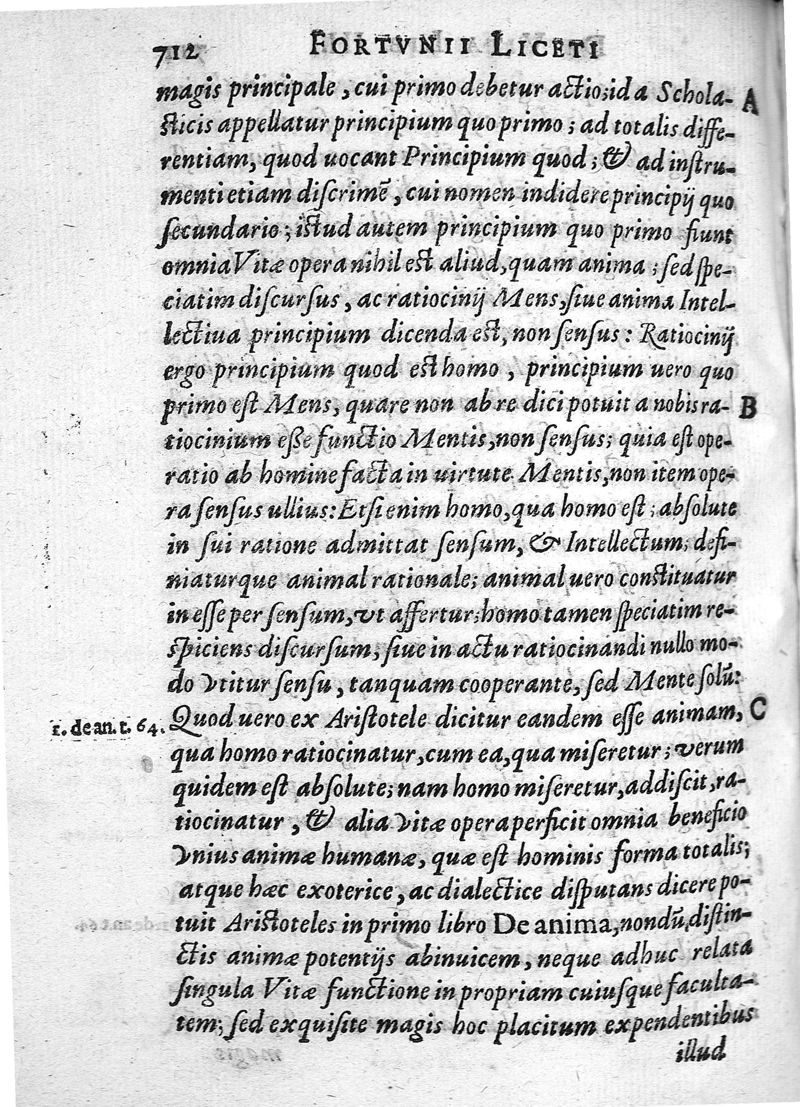 712 FORTVNII LICETI
magis principale, cui primo debetur actio; id a Schola- A
sticis appellatur principium quo primo; ad totalis diffe-
rentiam, quod uocant Principium quod; & ad instru-
menti etiam discrimē, cui nomen indidere principij quo
secundario; istud autem principium quo primo fiunt
omnia Vitæ opera nihil est aliud, quam anima; sed spe-
ciatim discursus, ac ratiocinij Mens, siue anima Intel-
lectiua principium dicenda est, non sensus: Ratiocinij
ergo principium quod est homo, principium uero quo
primo est Mens, quare non ab re dici potuit a nobis ra- B
tiocinium esse functio Mentis, non sensus; quia est ope-
ratio ab homine facta in uirtute Mentis, non item ope-
ra sensus ullius: Etsi enim homo, qua homo est; absolute
in sui ratione admittat sensum, & Intellectum; defi-
niaturque animal rationale; animal uero constituatur
in esse per sensum, vt affertur; homo tamen speciatim re-
spiciens discursum, siue in actu ratiocinandi nullo mo-
do vtitur sensu, tanquam cooperante, sed Mente solū:
1. de an. t. 64. Quod uero ex Aristotele dicitur eandem esse animam, C
qua homo ratiocinatur, cum ea, qua miseretur; verum
quidem est absolute; nam homo miseretur, addiscit, ra-
tiocinatur, & alia vitæ opera perficit omnia beneficio
vnius animæ humanæ, quæ est hominis forma totalis;
atque hæc exoterice, ac dialectice disputans dicere po-
tuit Aristoteles in primo libro De anima, nondū distin-
ctis animæ potentijs abinuicem, neque adhuc relata
singula Vitæ functione in propriam cuiusque faculta-
tem; sed exquisite magis hoc placitum expendentibus
illud